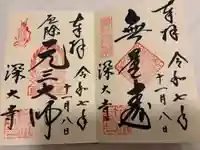 奉拝
令和七年
十一月八日
無量寿
深大寺
奉拝
令和七年
十一月八日
厄除
元三大師
深大寺